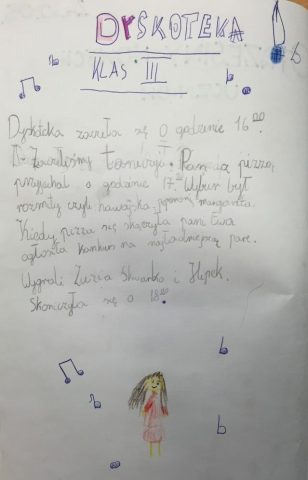 DYSKOTEKA
KLAS III
Dyskoteka zaczęła się o godzinie 16⁰⁰.
Zaczeliśmy tańczyć. Pan z pizzą
przyjechał o godzinie 17. Wybur był
rozmaity czyli hawajska, margarita.
Kiedy pizza się skączyła pani Ewa
ogłosiła konkurs na najładniejszą pare.
Wygrali Zuzia i
Skończyła się o 18⁰⁰.